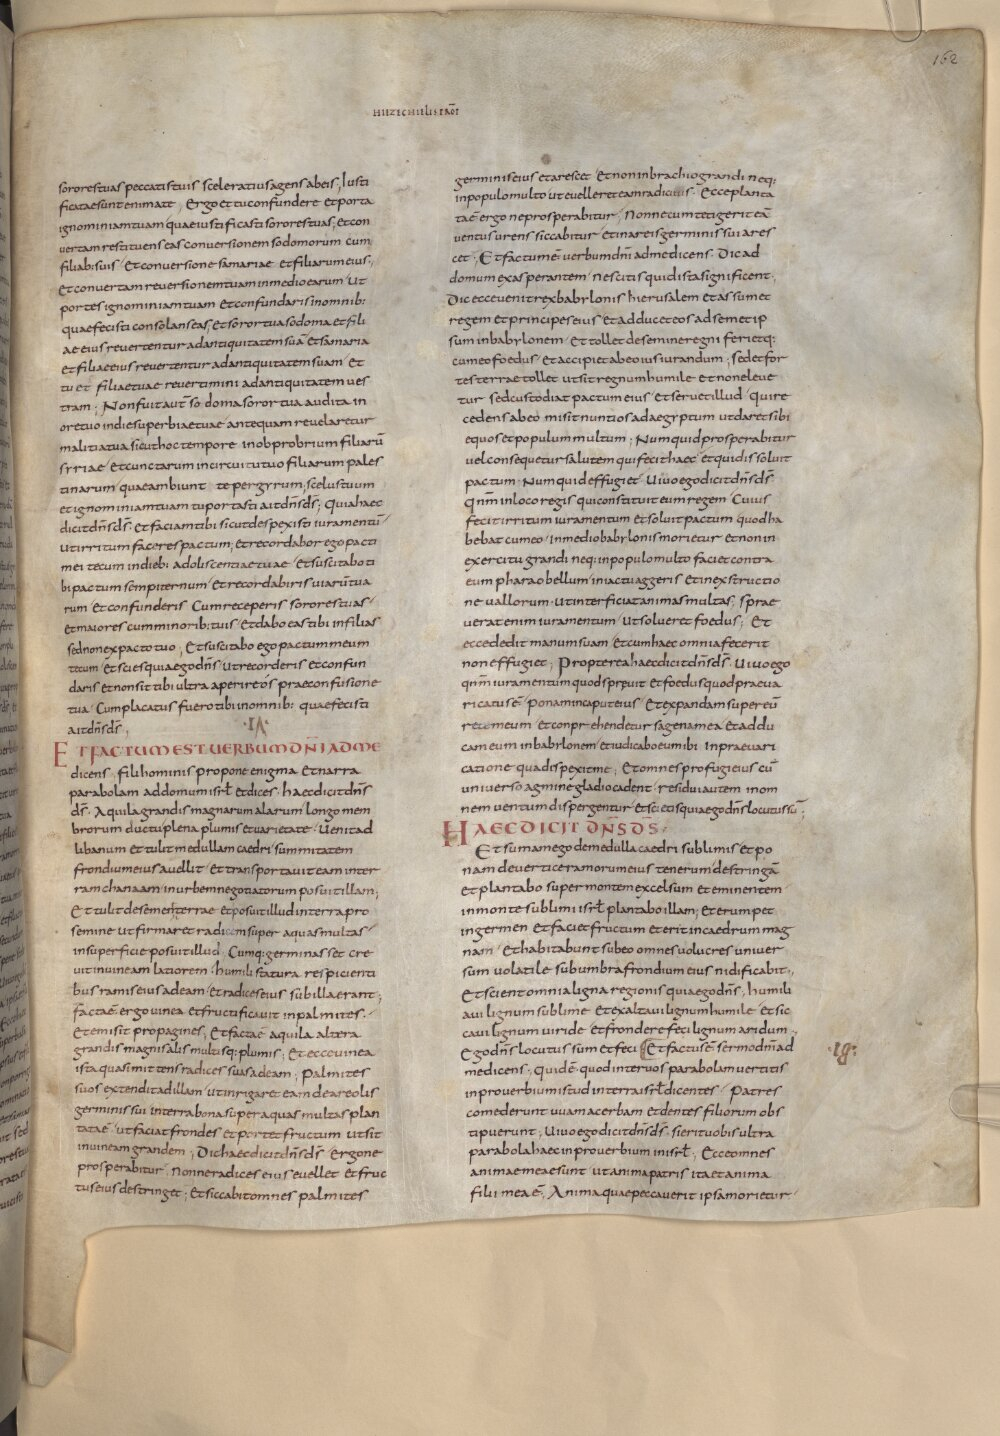 162
HIEZECHIELIS PROF
sororestuas peccatis tuis sceleratius agens ab eis; Iusti
ficatae sunt enim a te; Ergo et tu confundere et porta
ignominiam tuam quae iustificasti sorores tuas; et con
vertam restituens eas conversionem sodomorum cum
filiab: suis; Et conversione samariae et filiarum eius;
Et convertam reversionem tuam in medio earum Ut
portes ignominiam tuam Et confundaris in omnib:
quae fecisti consolans eas, et soror tua sodoma et fili
ae eius revertentur ad antiquitatem suā Et samaria
et filiae eius revertentur ad antiquitatem suam Et
tu et filiae tuae revertimini ad antiquitatem ves
tram; Non fuit aut̄ sodoma soror tua audita in
ore tuo in die superbiae tuae antequam revelaretur
malitia tua sicut hoc tempore in obprobrium filiarū
syriae Et cunctarum in circuitu tuo filiarum pales
tinarum quae ambiunt te per gyrum; scelus tuum
et ignominiam tuam tu portasti ait dn̄s ds̄; Quia haec
dicit dn̄s ds̄. Et faciam tibi sicut despexisti iuramentū
ut irritum faceres pactum; et recordabor ego pacti
mei tecum in dieb: adoliscentiae tuae Et suscitabo ti
bi pactum sempiternum Et recordaberis viarū tua
rum et confunderis Cum receperis sorores tuas
et maiores cum minorib: tuis Et dabo eas tibi in filias
sed non ex pacto tuo; Et suscitabo ego pactum meum
tecum Et scies quia ego dn̄s Ut recorderis et confun
daris et non sit tibi ultra aperire os prae confusione
tua Cum placatus fuero tibi in omnib: quae fecisti
ait dn̄s ds̄;
ET FACTUM EST UERBUM DNI AD ME
dicens. fili hominis propone enigma Et narra
parabolam ad domum isrł et dices. haec dicit dn̄s
ds̄. Aquila grandis magnarum alarum longo mem
brorum ductu plena plumis et varietate Venit ad
libanum et tulit medullam caedri summitatem
frondium eius avellit Et transportavit eam in ter
ram chanaam in urbem negotiatorum posuit illam;
Et tulit de semen terrae et posuit illud in terra pro
semine Ut firmaret radicem super aquas multas
in superficie posuit illud Cumq: germinasset cre
vit in vineam latiorem humili statura respicienti
bus ramis eius ad eam Et radices eius sub illa erant;
facta ē ergo vinea et fructificavit in palmites.
Et emisit propagines, Et facta ē aquila altera
grandis magnis alis multisq: plumis; Et ecce vinea
ista quasi mittens radices suas ad eam; Palmites
suos extendit ad illam ut inrigaret eam de areolis
germinis sui in terra bona super aquas multas plan
tata ē ut faciat frondes et portet fructum ut sit
in vineam grandem; Dic haec dicit dn̄s ds̄ Ergo ne
prosperabitur Nonne radices eius evellet et fruc
tus eius destringet; Et siccabit omnes palmites
germinis eius et arescet Et non in brachio grandi neq;
in populo multo ut evelleret eam radicitus. Ecce planta
ta ē ergo ne prosperabitur Nonne cum tetigerit eā
ventus urens siccabitur et in areis germinis sui ares
cet; Et factum ē verbum dn̄i ad me dicens. Dic ad
domum exasperantem nescitis quid ista significent;
Dic ecce venit rex babylonis hierusalem Et assumet
regem et principes eius Et adducet eos ad semet ip
sum in babylonem Et tollet de semine regni ferietq:
cum eo foedus Et accipiet ab eo iusiurandum; sed et for
tes terrae tollet ut sit regnum humile et non eleve
tur sed custodiat pactum eius et servet illud qui re
cedens ab eo misit nuntios ad aegyptum ut daret sibi
equos et populum multum; Numquid prosperabitur
vel consequetur salutem qui fecit haec et qui dissolvit
pactum Numquid effugiet. Vivo ego dicit dn̄s ds̄
Qnm̄ in loco regis qui constituit eum regem Cuius
fecit irritum iuramentum et solvit pactum quod ha
bebat cum eo in medio babylonis morietur et non in
exercitu grandi neq: in populo multo faciet contra
eum pharao bellum in iactu aggeris Et in exstructio
ne vallorum ut interficiat animas multas; sprae
verat enim iuramentum Ut solveret foedus; Et
ecce dedit manum suam Et cum haec omnia fecerit
non effugiet; Propterea haec dicit dn̄s ds̄. Vivo ego
qnm̄ iuramentum quod sprevit Et foedus quod praeva
ricatus ē Ponam in caput eius; Et expandam super eū
rete meum et conprehendetur sagena mea Et addu
cam eum in babylonem et iudicabo eum ibi In praevari
catione qua dispexit me; Et omnes profugi eius cū
universo agmine gladio cadent residui autem in om
nem ventum dispergentur et scietis quia ego dn̄s locutus sū;
HAEC DICIT DN̄S DS̄.
Et sumam ego de medulla caedri sublimis et po
nam de vertice ramorum eius tenerum destringā
et plantabo super montem excelsum et eminentem
in monte sublimi isrł plantabo illam; Et erumpet
in germen Et faciet fructum et erit in caedrum mag
nam Et habitabunt sub eo omnes volucres univer
sum volatile sub umbra frondium eius nidificabit;
Et scient omnia ligna regionis quia ego dn̄s, humili
avi lignum sublime Et exaltavi lignum humile et sic
cavi lignum viride et frondere feci lignum aridum
Ego dn̄s locutus sum et feci Et factus ē sermo dn̄i ad
me dicens; Quid ē quod inter vos parabolam vertitis
in proverbium istud in terra isrł dicentes Patres
comederunt uvam acerbam et dentes filiorum obs
tipuerunt; Vivo ego dicit dn̄s ds̄. si erit vobis ultra
parabola haec in proverbium in isrł; Ecce omnes
animae meae sunt ut anima patris ita et anima
filii mea ē, Anima quae peccaverit ipsa morietur